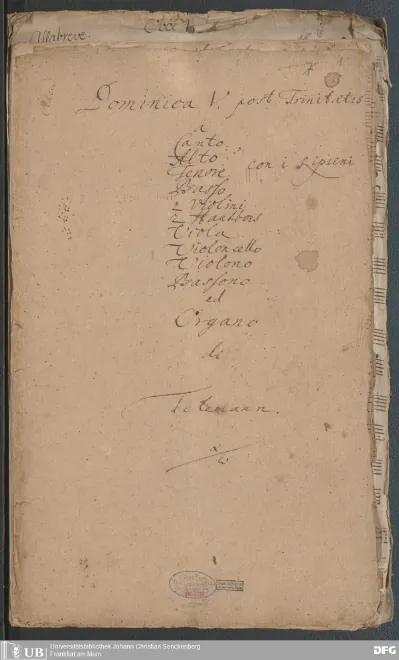 Allabreve.
Oboe 1
1
Dominica V. post Trinitatis
a
Canto
Alto
Tenore con i ripieni
Basso
2 Violini
2 Hautbois
Viola
Violoncello
Violono
Bassono
ed
Organo
di
Telemann.
UB
Universitätsbibliothek Johann Christian Senckenberg
Frankfurt am Main
DFG